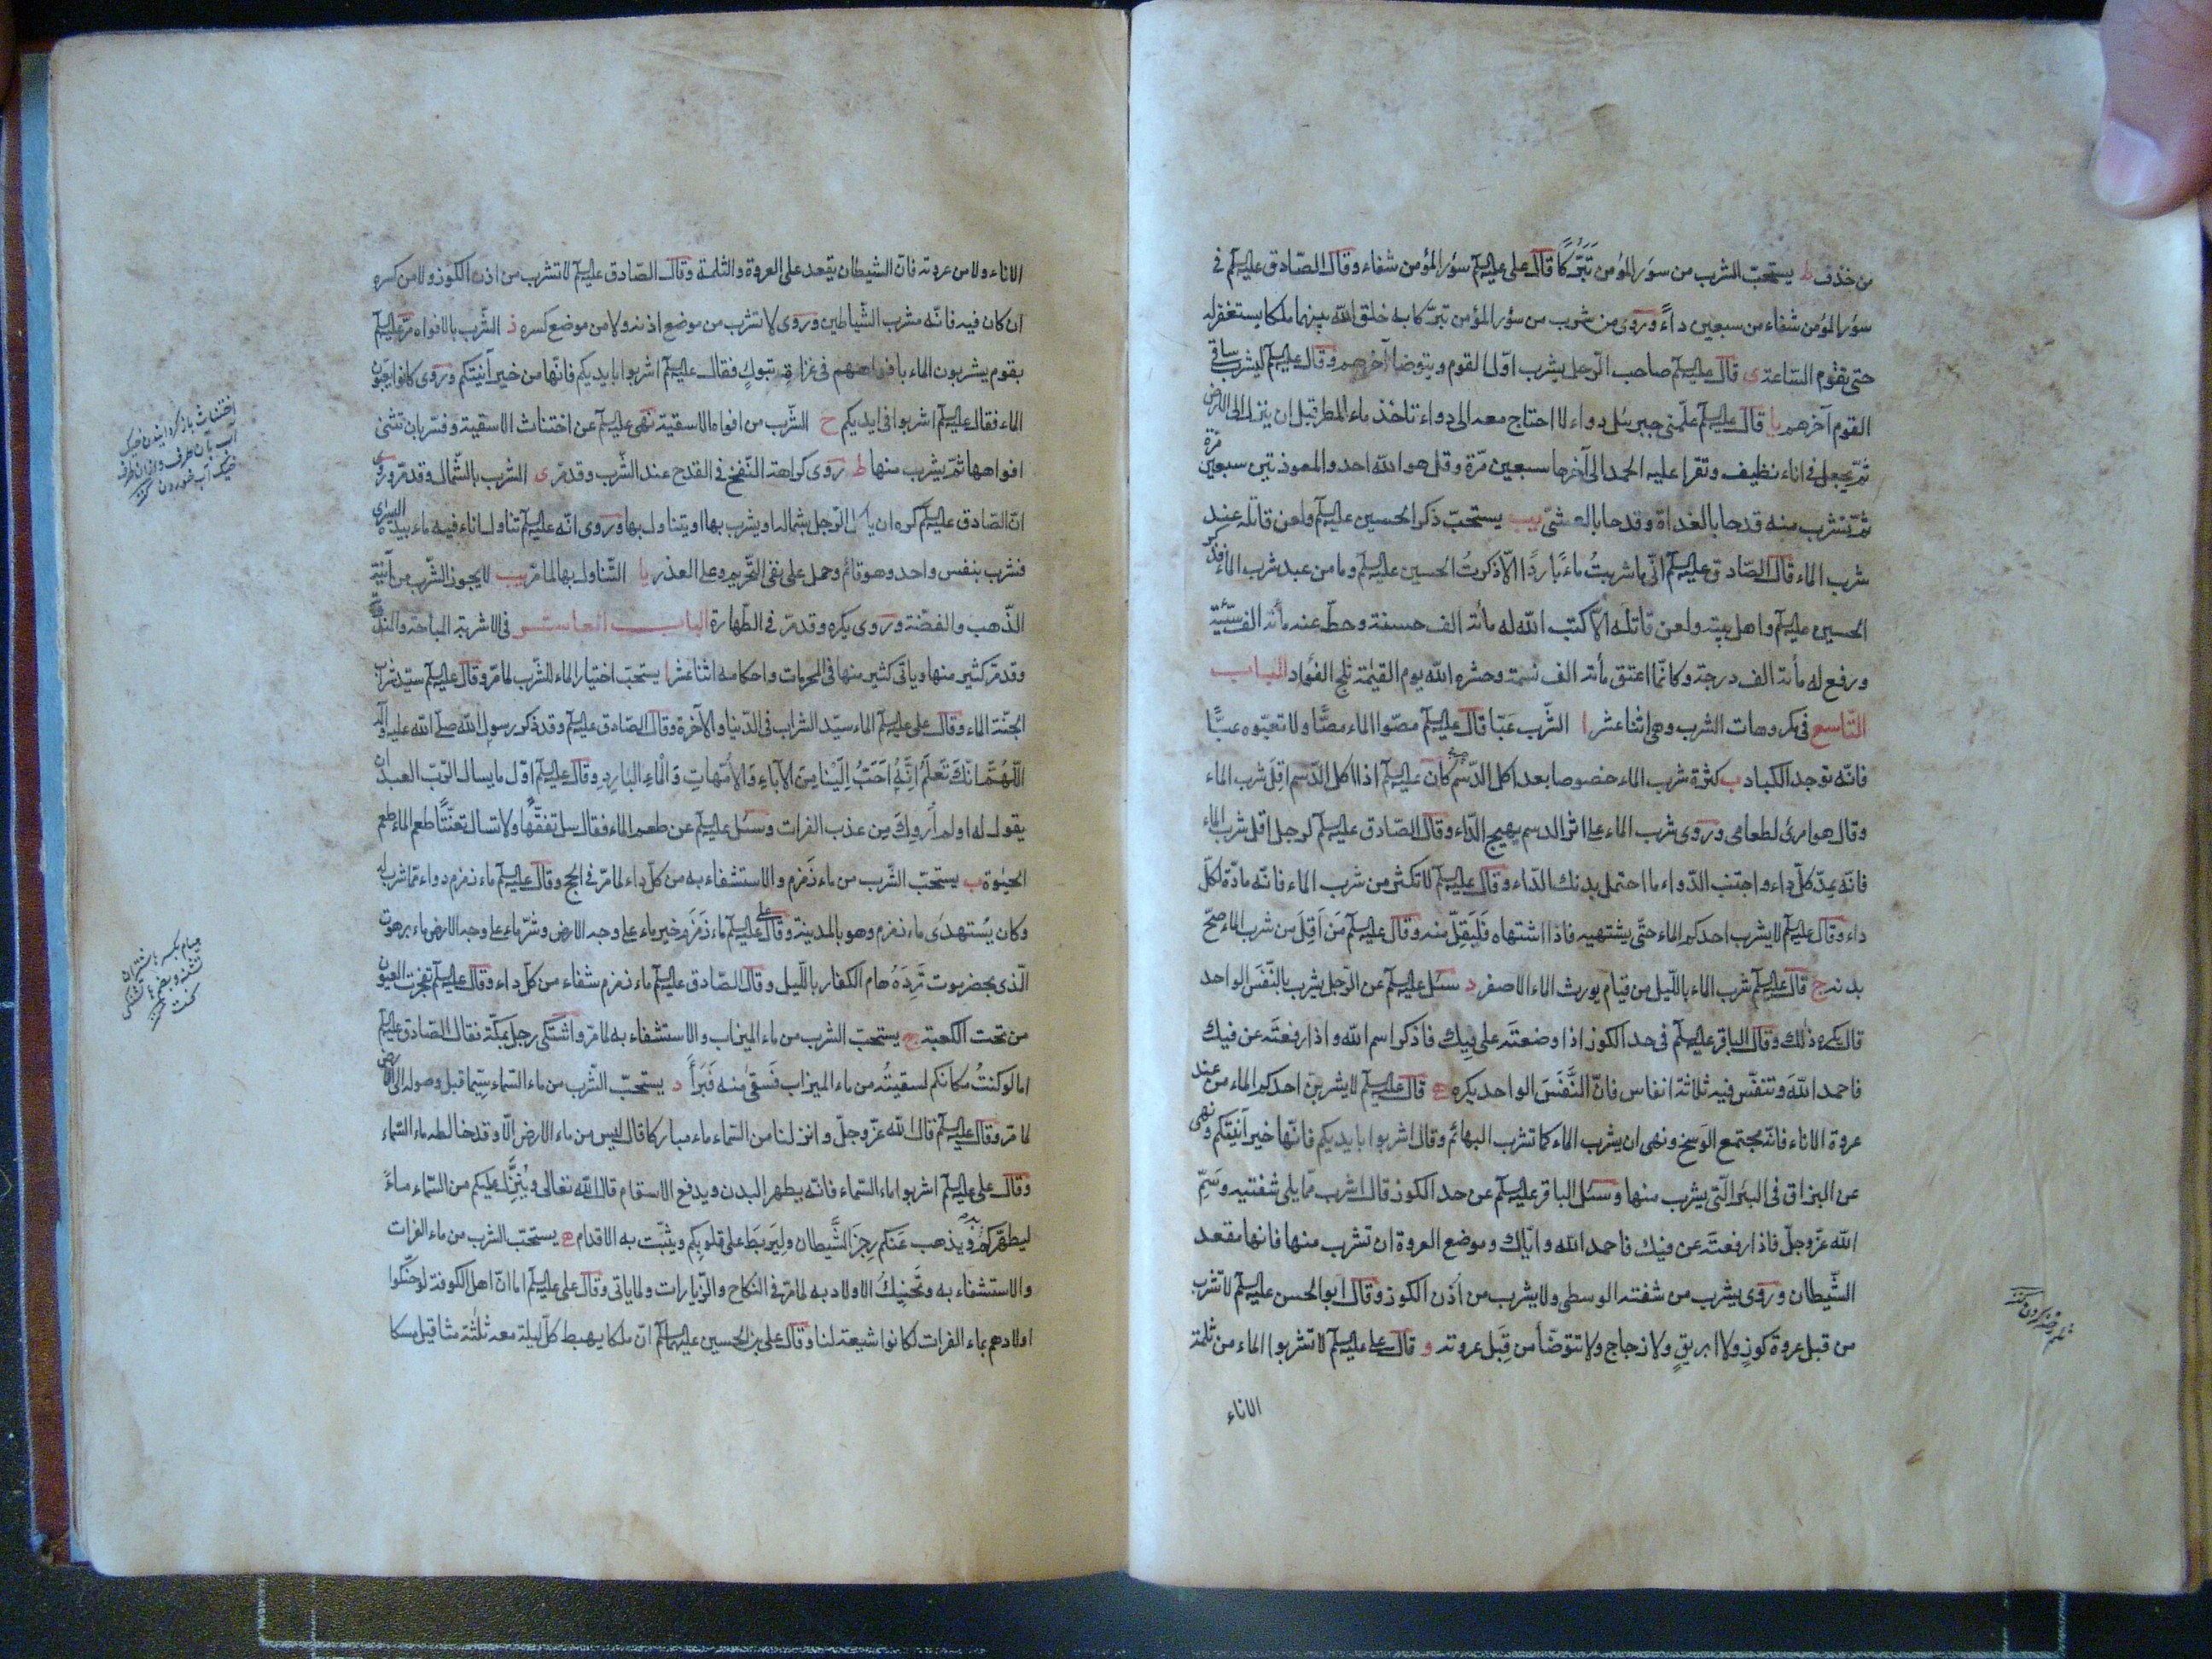 من خذف ط يستحبّ الشرب من سؤر المؤمن تَبَرُّكًا قال على عليه‌السلم سؤر المؤمن شفاء وقال الصّادق عليه‌السلم فى
سؤر المؤمن شفاء من سبعين داءً وروى من شرب من سؤر المؤمن تبرّكا به خلق الله بينهما ملكا يستغفر له
حتى تقوم السّاعة ى قال عليه‌السلم صاحب الرّحل يشرب اوّل القوم ويتوضا آخرهم وقال عليه‌السلم ليشرب ساقى
القوم آخرهم يا قال عليه‌السلم علّمنى جبرئيل دواء لا احتاج معه الى دواء تاخذ ماء المطر قبل ان ينزل الى الارض
ثمّ يجعل فى اناء نظيف وتقرا عليه الحمد الى آخرها سبعين مرّة وقل هو الله احد والمعوذتين سبعين مرّة
ثمّ تشرب منه قدحا بالغداة وقدحا بالعشىّ يب يستحبّ ذكر الحسين عليه‌السلم ولعن قاتله عند
شرب الماء قال الصّادق عليه‌السلم انّى ما شربتُ ماءً باردًا الّا ذكرتُ الحسين عليه‌السلم وما من عبد شرب الماء فذكر
الحسين عليه‌السلم واهل بيته ولعن قاتله الّا كتب الله له مائة الف حسنة وحطّ عنه مائة الف سيّئة
ورفع له مائة الف درجة وكانّما اعتق مائة الف نسمة وحشره الله يوم القيمة ثلج الفؤاد الباب
التّاسع فى مكروهات الشرب وهى اثنا عشر ا الشّرب عَبّا قال عليه‌السلم مصّوا الماء مصًّا ولا تعبّوه عبًّا
فانّه توجد الكباد ب كثرة شرب الماء خصوصا بعد اكل الدّسم كان عليه‌السلم اذا اكل الدّسم اقلّ شرب الماء
وقال هو امرئ لطعامى وروى شرب الماء على اثر الدسم يهيج الدّاء وقال الصّادق عليه‌السلم لرجل اقل شرب الماء
فانّه يمدّ كلّ داء واجتنب الدّواء ما احتمل بدنك الدّاء وقال عليه‌السلم لا تكثر من شرب الماء فانّه مادّة لكلّ
داء وقال عليه‌السلم لا يشرب احدكم الماء حتّى يشتهيه فاذا اشتهاه فَليَقِلّ منه وقال عليه‌السلم مَن اَقلَّ من شرب الماء صحّ
بدنه ج قال عليه‌السلم شرب الماء بالليل من قيام يورث الماء الاصفر د سئل عليه‌السلم عن الرّجل يشرب بالنّفَس الواحد
قال يكره ذلك وقال الباقر عليه‌السلم فى حد الكوز اذا وضعتَه على فِيك فاذكر اسم الله واذا رفعتَه عن فيك
فاحمد اللهَ وتنفّس فيه ثلاثة انفاس فانّ النَّفَسَ الواحد يكره ه قال عليه‌السلم لا يشربنّ احدكم الماء من عند
عروة الاناء فانّه مجتمع الوَسخ ونهى ان يشرب الماء كما تشرب البهائم وقال اشربوا بايديكم فانّها خير آنيتكم ونهى
عن البزاق فى البئر الّتى يشرب منها وسئل الباقر عليه‌السلم عن حد الكوز قال اشرب ممّا يلى شفتيه وسَمِّ
الله عزّ وجلّ فاذا رفعتَه عن فيك فاحمد الله وايّاك وموضع العروة ان تشرب منها فانها مقعد
الشّيطان وروى يشرب من شفته الوسطى ولا يشرب من اُذن الكوز وقال ابو الحسن عليه‌السلم لا تشرب
من قبل عروة كوزٍ ولا ابريقٍ ولا زجاج ولا تتوضّأ من قِبَل عروته و قال على عليه‌السلم لا تشربوا الماء من ثلمة
الاناء
الاناء ولا من عروته فانّ الشيطان يقعد على العروة والثلمة وقال الصّادق عليه‌السلم لا تشرب من اذن الكوز ولا من كسره
ان كان فيه فانّه مشرب الشّياطين وروى لا تشرب من موضع اذنه ولا من موضع كسره ز الشّرب بالافواه مرّ عليه‌السلم
بقوم يشربون الماء بافواههم فى غزاة تبوك فقال عليه‌السلم اشربوا بايديكم فانّها من خير آنيتكم وروى كانوا يعبّون
الماء فقال عليه‌السلم اشربوا فى ايديكم ح الشّرب من افواه الاسقية نهى عليه‌السلم عن اختناث الاسقية وفسّر بان تثنى
افواهها ثمّ يشرب منها ط روى كراهة النّفخ فى القدح عند الشّرب وقد مرّ ى الشرب بالشّمال وقد مرّ وروى
انّ الصّادق عليه‌السلم كره ان ياكل الرّجل بشماله او يشرب بها او يتناول بها وروى انّه عليه‌السلم تناول اناء فيه ماء بيده اليسرى
فشرب بنفس واحد وهو قائم وحمل على نفى التّحريم وعلى العذر يا التّناول بها لما مرّ يب لا يجوز الشّرب من آنية
الذّهب والفضّة وروى يكره وقد مرّ فى الطّهارة الباب العاشر فى الاشربة المباحة والمندوبة
وقد مرّ كثير منها وياتى كثير منها فى المحرمات واحكامه اثنا عشر ا يستحبّ اختيار الماء للشّرب لما مرّ وقال عليه‌السلم سيّد شراب
الجنّة الماء وقال على عليه‌السلم الماء سيّد الشراب فى الدّنيا والآخرة وقال الصّادق عليه‌السلم وقد ذكر رسول الله صلى الله عليه وآله
اللّهُمَّ انّكَ تَعلَمُ اَنَّه اَحَبُّ اِلَيْنا مِنَ الآباءِ وَالاُمّهاتِ وَالماءِ البارِدِ وقال عليه‌السلم اوّل ما يسال الرّب العبد ان
يقول له اولم اُروِكَ مِن عذب الفرات وسئل عليه‌السلم عن طعم الماء فقال سل تفقّهًا ولا تسال تعنّتًا طعم الماء طعم
الحيٰوة ب يستحبّ الشّرب من ماء زَمزم والاستشفاء به من كلّ داء لما مرّ فى الحج وقال عليه‌السلم ماء زمزم دواء ممّا شرب له
وكان يُستهدى ماء زمزم وهو بالمدينة وقال على عليه‌السلم ماء زَمزَم خير ماء على وجه الارض وشرّ ماء على وجه الارض ماء برهوت
الّذى بحضرموت تَرِدَهُ هام الكفار بالليل وقال الصّادق عليه‌السلم ماء زمزم شفاء من كلّ داء وقال عليه‌السلم تفجرت العيون
من تحت الكعبة ج يستحبّ الشرب من ماء الميزاب والاستشفاء به لما مرّ واشتكى رجل بمكّة فقال الصّادق عليه‌السلم
اما لو كنتُ مكانكم لسقيتُه من ماء الميزاب فَسقى منه فَبَرأَ د يستحبّ الشّرب من ماء السّماء سيّما قبل وصوله الى الارض
لما مرّ وقال عليه‌السلم قال الله عزّ وجلّ وانزلنا من السّماء ماء مباركا قال ليس من ماء الارض الّا وقد خالطه ماء السّماء
وقال على عليه‌السلم اشربوا ماء السّماء فانّه يطهر البدن ويدفع الاسقام قال الله تعالى ويُنَزِّل عليكم من السّماء ماءً
ليطهّركم به ويذهب عَنكم رجزَ الشّيطان ولِيَربَطَ على قلوبكم ويثبّت به الاقدام ه يستحبّ الشرب من ماء الفرات
والاستشفاء به وتَحنيكُ الاولاد به لما مرّ فى النّكاح والزّيارات ولما ياتى وقال على عليه‌السلم اما انّ اهل الكوفة لو حنّكوا
اولادهم بماء الفرات لكانوا شيعة لنا وقال على بن الحسين عليهما‌السلم انّ ملكا يهبط كلّ ليلة معه ثلثة مثاقيل مسكا